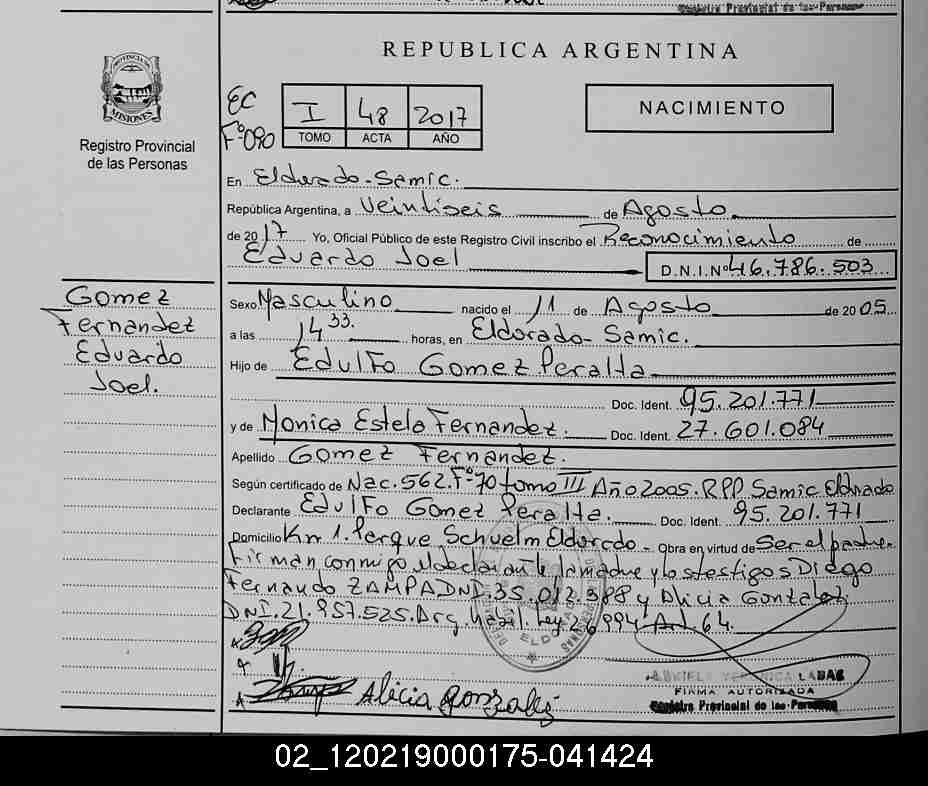 Registro Provincial de las Personas
REPUBLICA ARGENTINA
PROVINCIA DE
MISIONES
Registro Provincial
de las Personas
EC
Fº 090
I 48 2017
TOMO ACTA AÑO
NACIMIENTO
En Eldorado-Samic.
República Argentina, a Veintiseis de Agosto
de 2017 Yo, Oficial Público de este Registro Civil inscribo el Reconocimiento de
Eduardo Joel D.N.I.Nº 46.786.503
Gomez
Fernandez
Eduardo
Joel.
Sexo Masculino nacido el 11 de Agosto de 2005.
a las 14 33. horas, en Eldorado-Samic.
Hijo de Edulfo Gomez Peralta
Doc. Ident. 95.201.771
y de Monica Estela Fernandez. Doc. Ident. 27.601.084
Apellido Gomez Fernandez.
Según certificado de Nac. 562. Fº 70 tomo III Año 2005. RPP. Samic Eldorado
Declarante Edulfo Gomez Peralta. Doc. Ident. 95.201.771
Domicilio Km 1. Parque Schuelm Eldorado - Obra en virtud de Ser el padre.
Firman conmigo el declarante la madre y los testigos Diego
Fernando ZAMPA DNI. 35.012.388 y Alicia Gonzalez.
DNI. 21.957.525. Arg. habil. Ley. 26.994 Art 64.
ELDO
Alicia Gonzalez
LABAC
FIRMA AUTORIZADA
Registro Provincial de las Personas
02_120219000175-041424